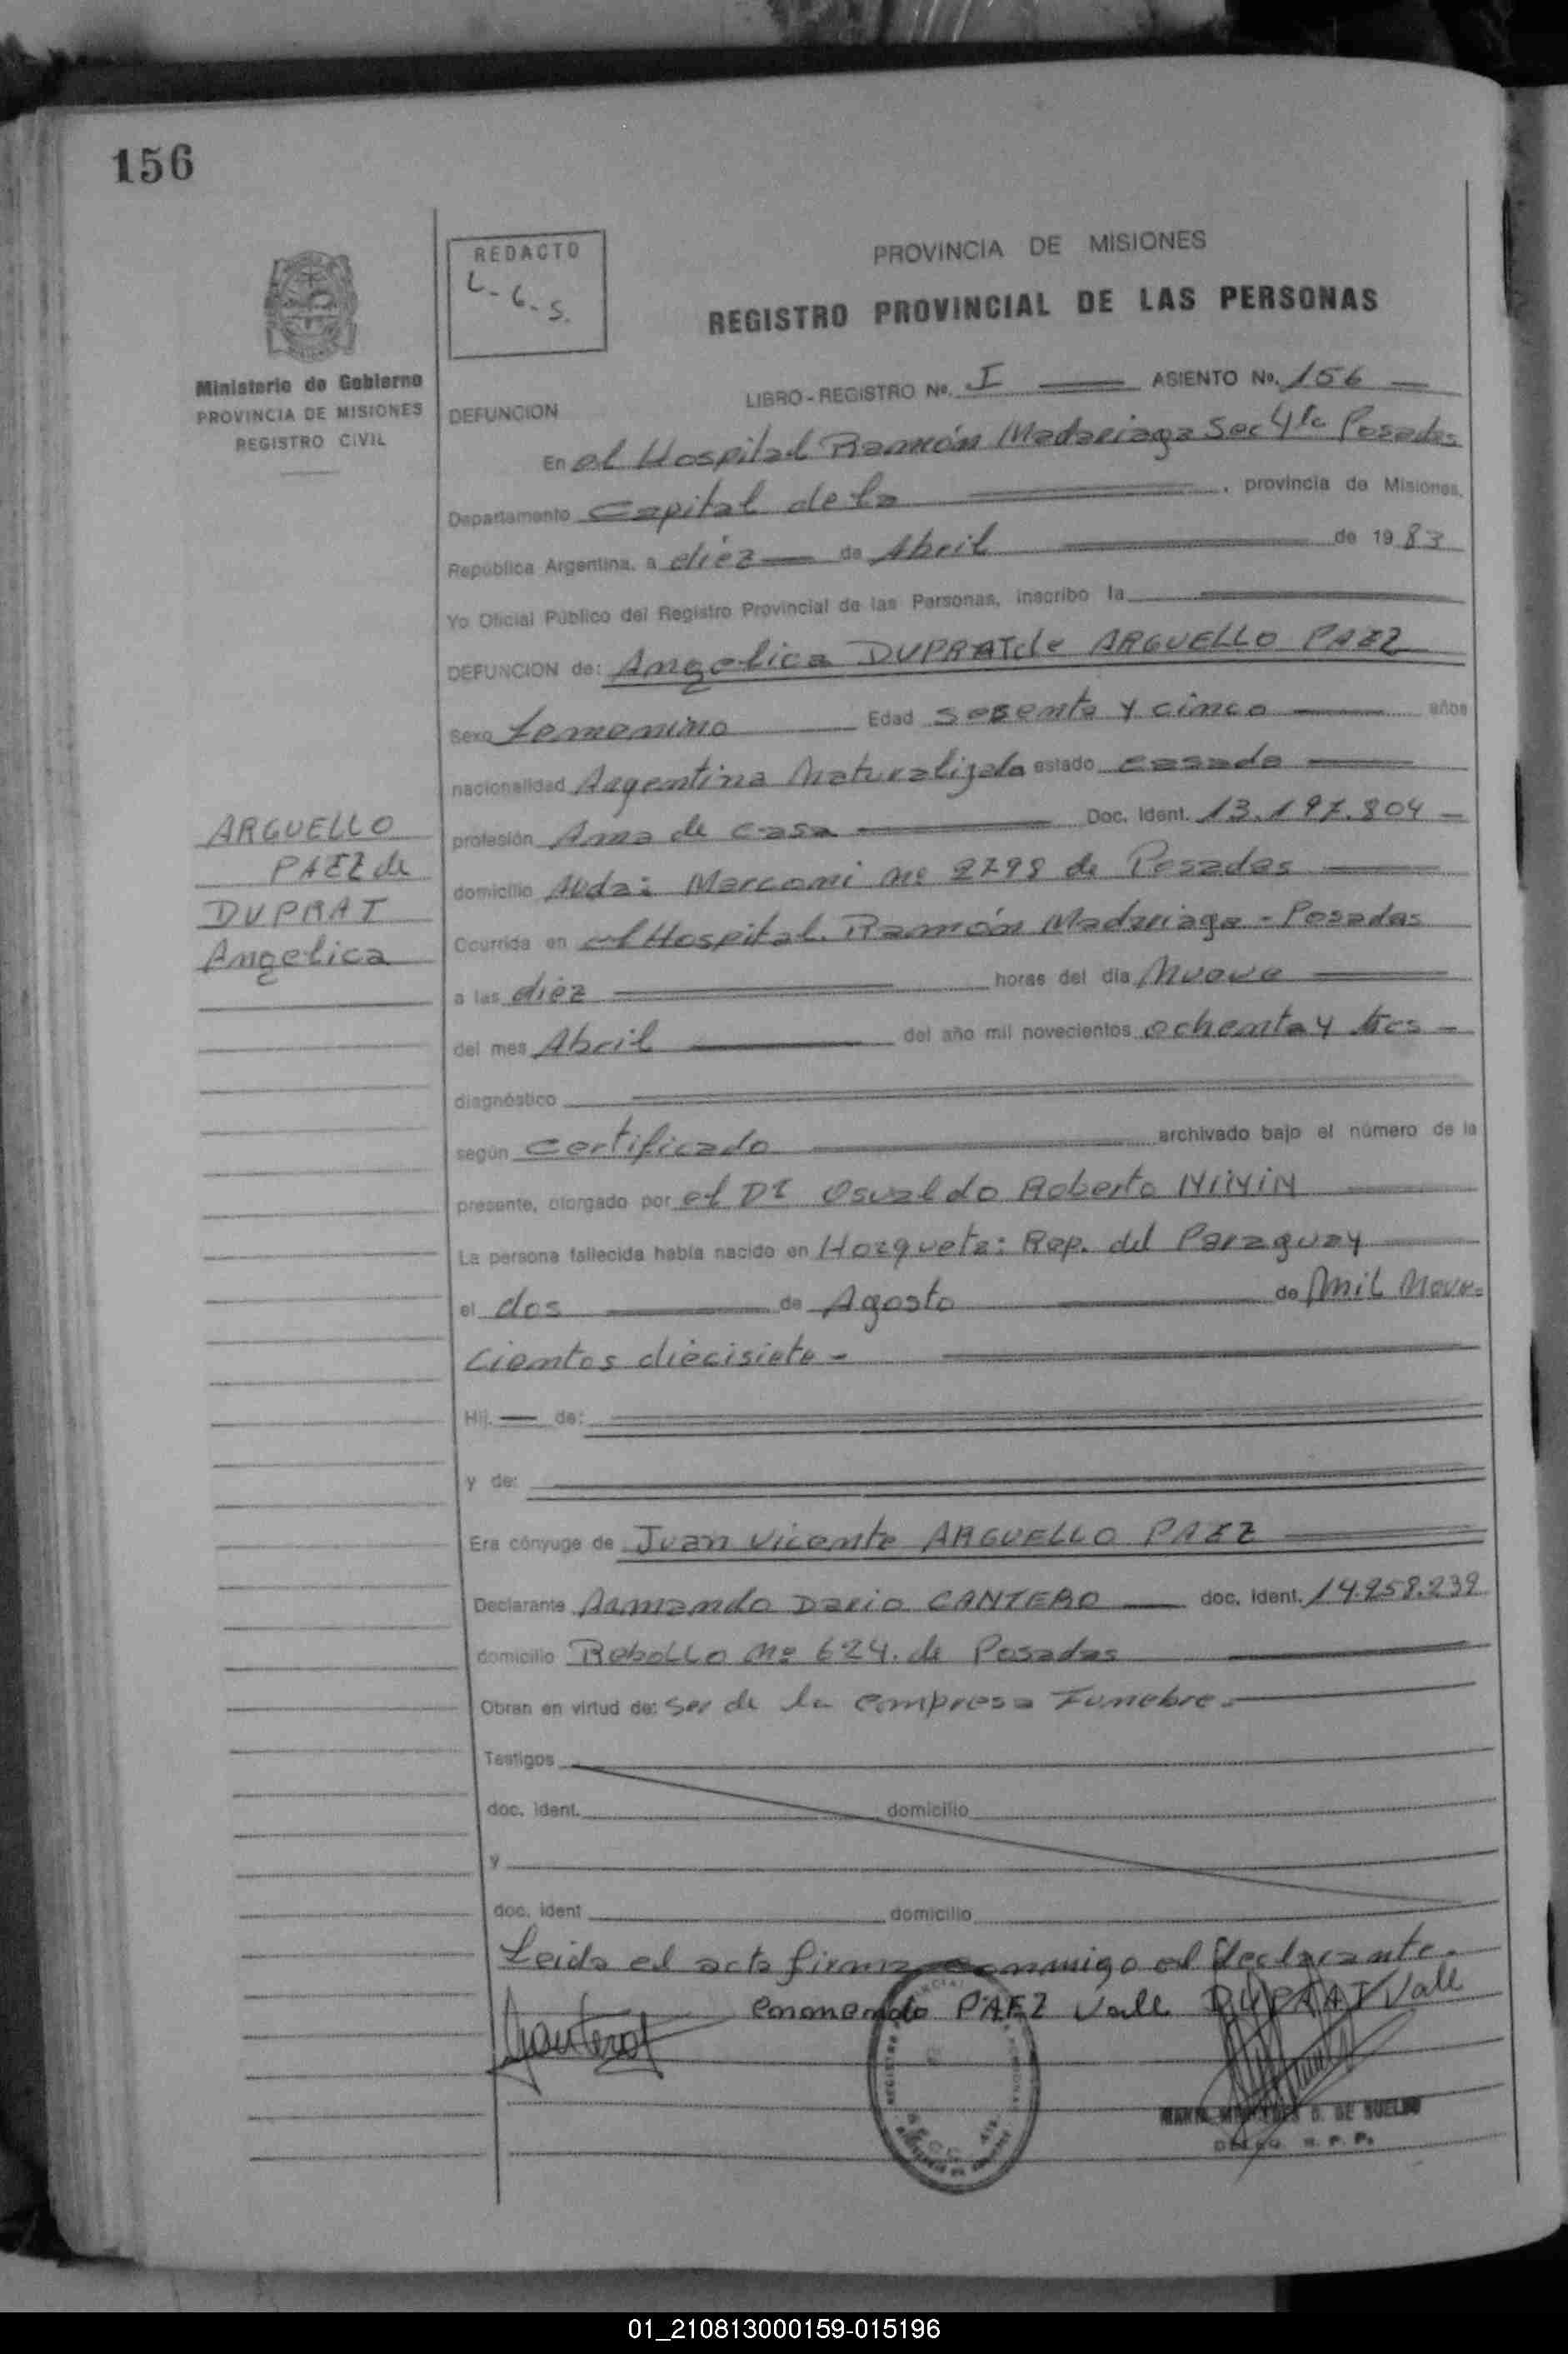 156
REDACTO
L-G-S.
PROVINCIA DE MISIONES
REGISTRO PROVINCIAL DE LAS PERSONAS
Ministerio de Gobierno
PROVINCIA DE MISIONES
REGISTRO CIVIL
LIBRO-REGISTRO No. I ASIENTO No. 156
DEFUNCION
En el Hospital Ramón Madariaga Sec 4ta Posadas
Departamento Capital de la , provincia de Misiones,
República Argentina, a diez de Abril de 1983
Yo Oficial Público del Registro Provincial de las Personas, inscribo la
DEFUNCION de: Angelica DUPRAT de ARGUELLO PAEZ
Sexo Femenino Edad sesenta y cinco años
nacionalidad Argentina Naturalizada estado casada
profesión Ama de casa Doc. Ident. 13.197.804
domicilio Avda: Marconi Nº 2798 de Posadas
Ocurrida en el Hospital Ramón Madariaga - Posadas
a las diez horas del día Nueve
del mes Abril del año mil novecientos ochenta y tres
diagnóstico
según certificado archivado bajo el número de la
presente, otorgado por el Dr Osvaldo Roberto NIMIN
La persona fallecida había nacido en Horqueta: Rep. del Paraguay
el dos de Agosto de Mil Nove-
cientos diecisiete -
Hij. de:
y de:
Era cónyuge de Juan Vicente ARGUELLO PAEZ
Declarante Armando Dario CANTERO doc. ident. 14.958.239
domicilio Rebollo Nº 624. de Posadas
Obran en virtud de: ser de la empresa Funebre.
Testigos
doc. ident. domicilio
y
doc. ident domicilio
Leida el acta firma conmigo el declarante.
enmendado PAEZ Vale DUPRAT Vale
ARGUELLO
PAEZ de
DUPRAT
Angelica
DELEG. R. P. P.
01_210813000159-015196